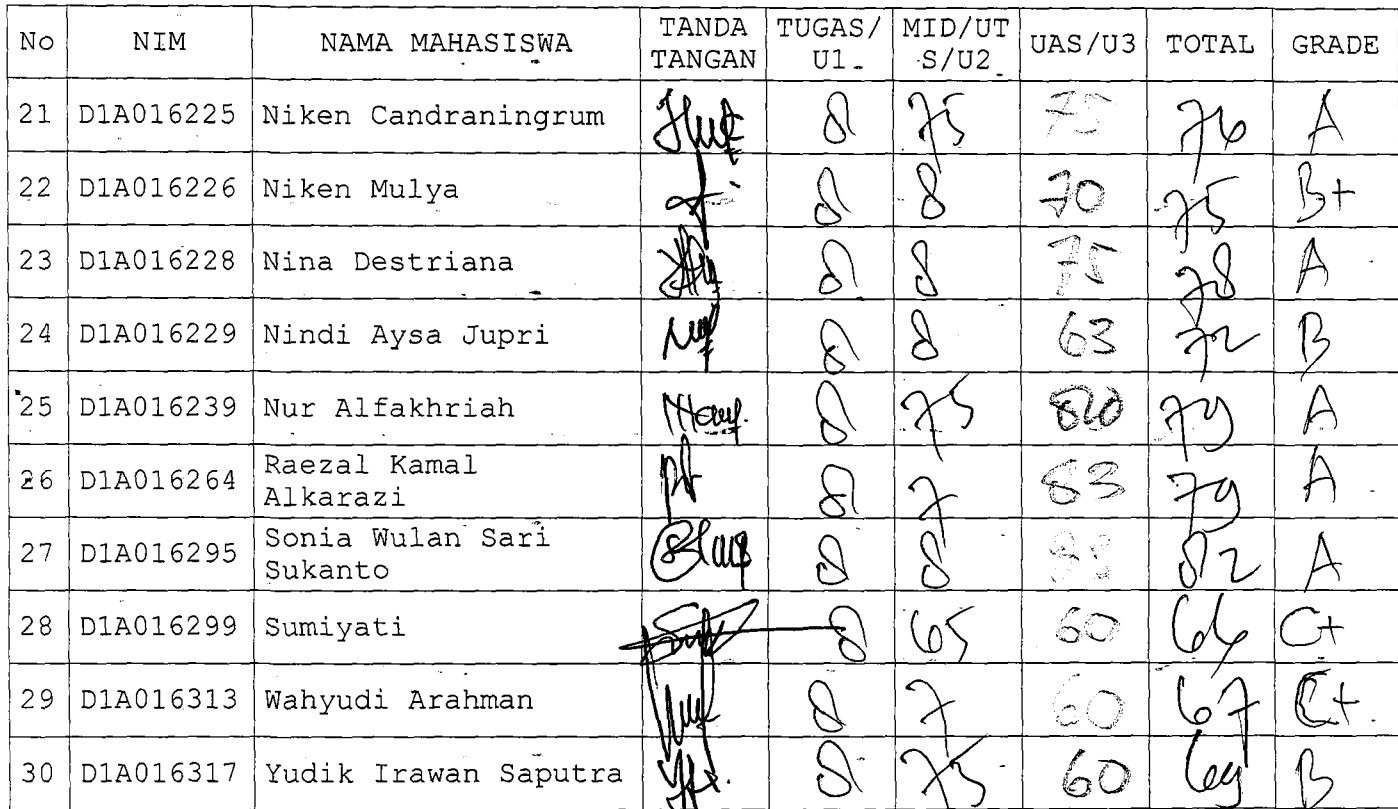 No NIM NAMA MAHASISWA TANDA TANGAN TUGAS/ U1. MID/UT S/U2 UAS/U3 TOTAL GRADE
21 D1A016225 Niken Candraningrum 8 75 75 76 A
22 D1A016226 Niken Mulya 8 8 70 75 B+
23 D1A016228 Nina Destriana 8 8 75 78 A
24 D1A016229 Nindi Aysa Jupri 8 8 63 72 B
25 D1A016239 Nur Alfakhriah 8 75 79 A
26 D1A016264 Raezal Kamal Alkarazi 8 7 83 79 A
27 D1A016295 Sonia Wulan Sari Sukanto 8 8 82 A
28 D1A016299 Sumiyati 8 65 60 66 C+
29 D1A016313 Wahyudi Arahman 8 7 60 67 C+
30 D1A016317 Yudik Irawan Saputra 8 75 60 69 B